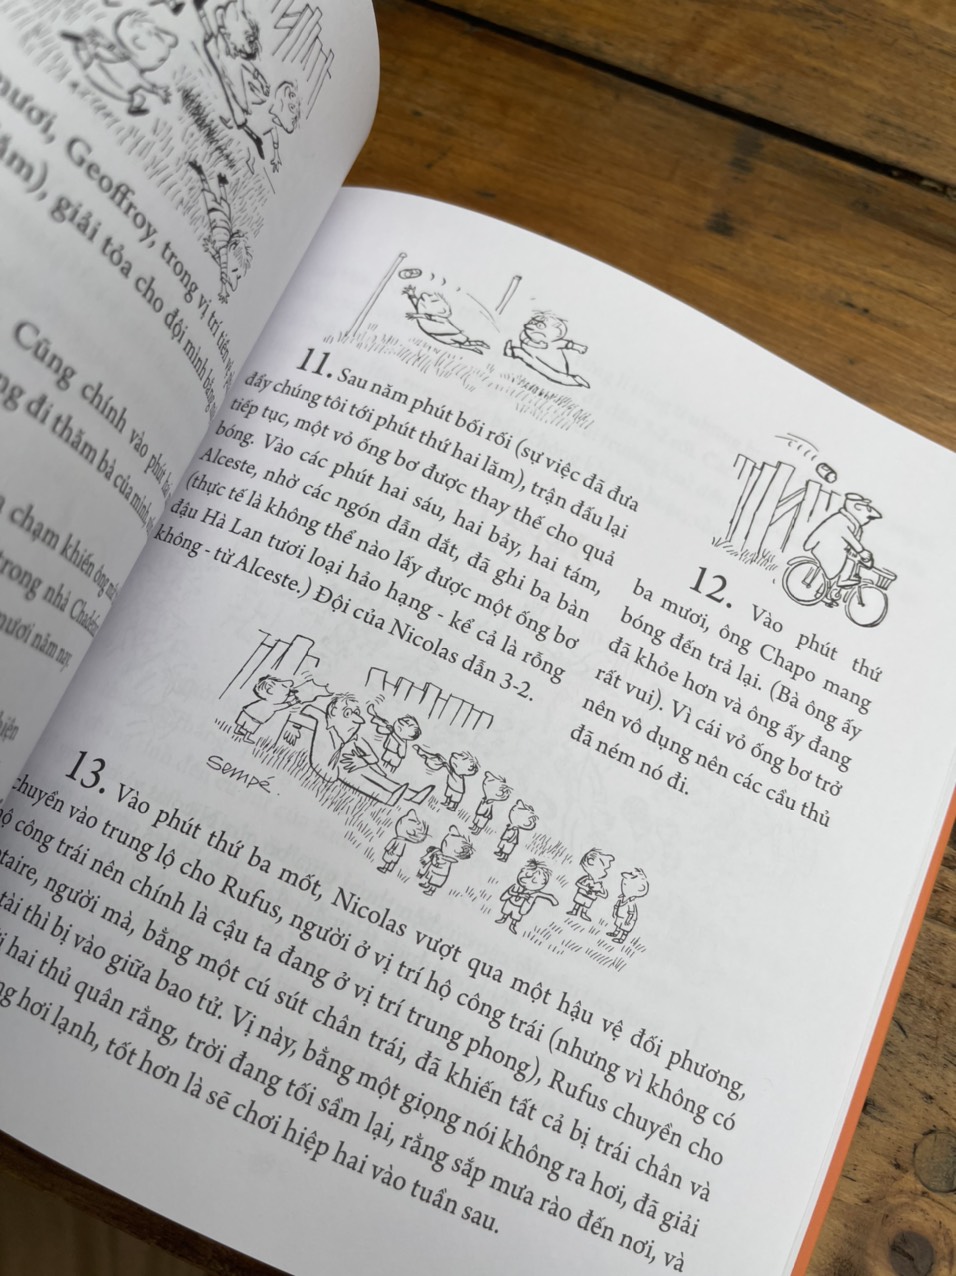 mươi, Geoffroy, trong vị trí tiền vệ
giải tỏa cho đội mình bằng
Cũng chính vào phút
đi thăm bà của mình
chạm khiến ông
trong nhà
mươi năm nay
11. Sau năm phút bối rối (sự việc đã đưa
đẩy chúng tôi tới phút thứ hai lăm), trận đấu lại
tiếp tục, một vỏ ống bơ được thay thế cho quả
bóng. Vào các phút hai sáu, hai bảy, hai tám,
Alceste, nhờ các ngón dẫn dắt, đã ghi ba bàn
(thực tế là không thể nào lấy được một ống bơ
đậu Hà Lan tươi loại hảo hạng - kể cả là rỗng
không - từ Alceste.) Đội của Nicolas dẫn 3-2.
12. Vào phút thứ
ba mươi, ông Chapo mang
bóng đến trả lại. (Bà ông ấy
đã khỏe hơn và ông ấy đang
rất vui). Vì cái vỏ ống bơ trở
nên vô dụng nên các cầu thủ
đã ném nó đi.
Sempé.
13. Vào phút thứ ba mốt, Nicolas vượt qua một hậu vệ đối phương,
chuyền vào trung lộ cho Rufus, người ở vị trí hộ công trái (nhưng vì không có
hộ công trái nên chính là cậu ta đang ở vị trí trung phong), Rufus chuyền cho
người mà, bằng một cú sút chân trái, đã khiến tất cả bị trái chân và
tài thì bị vào giữa bao tử. Vị này, bằng một giọng nói không ra hơi, đã giải
hai thủ quân rằng, trời đang tối sầm lại, rằng sắp mưa rào đến nơi, và
hơi lạnh, tốt hơn là sẽ chơi hiệp hai vào tuần sau.